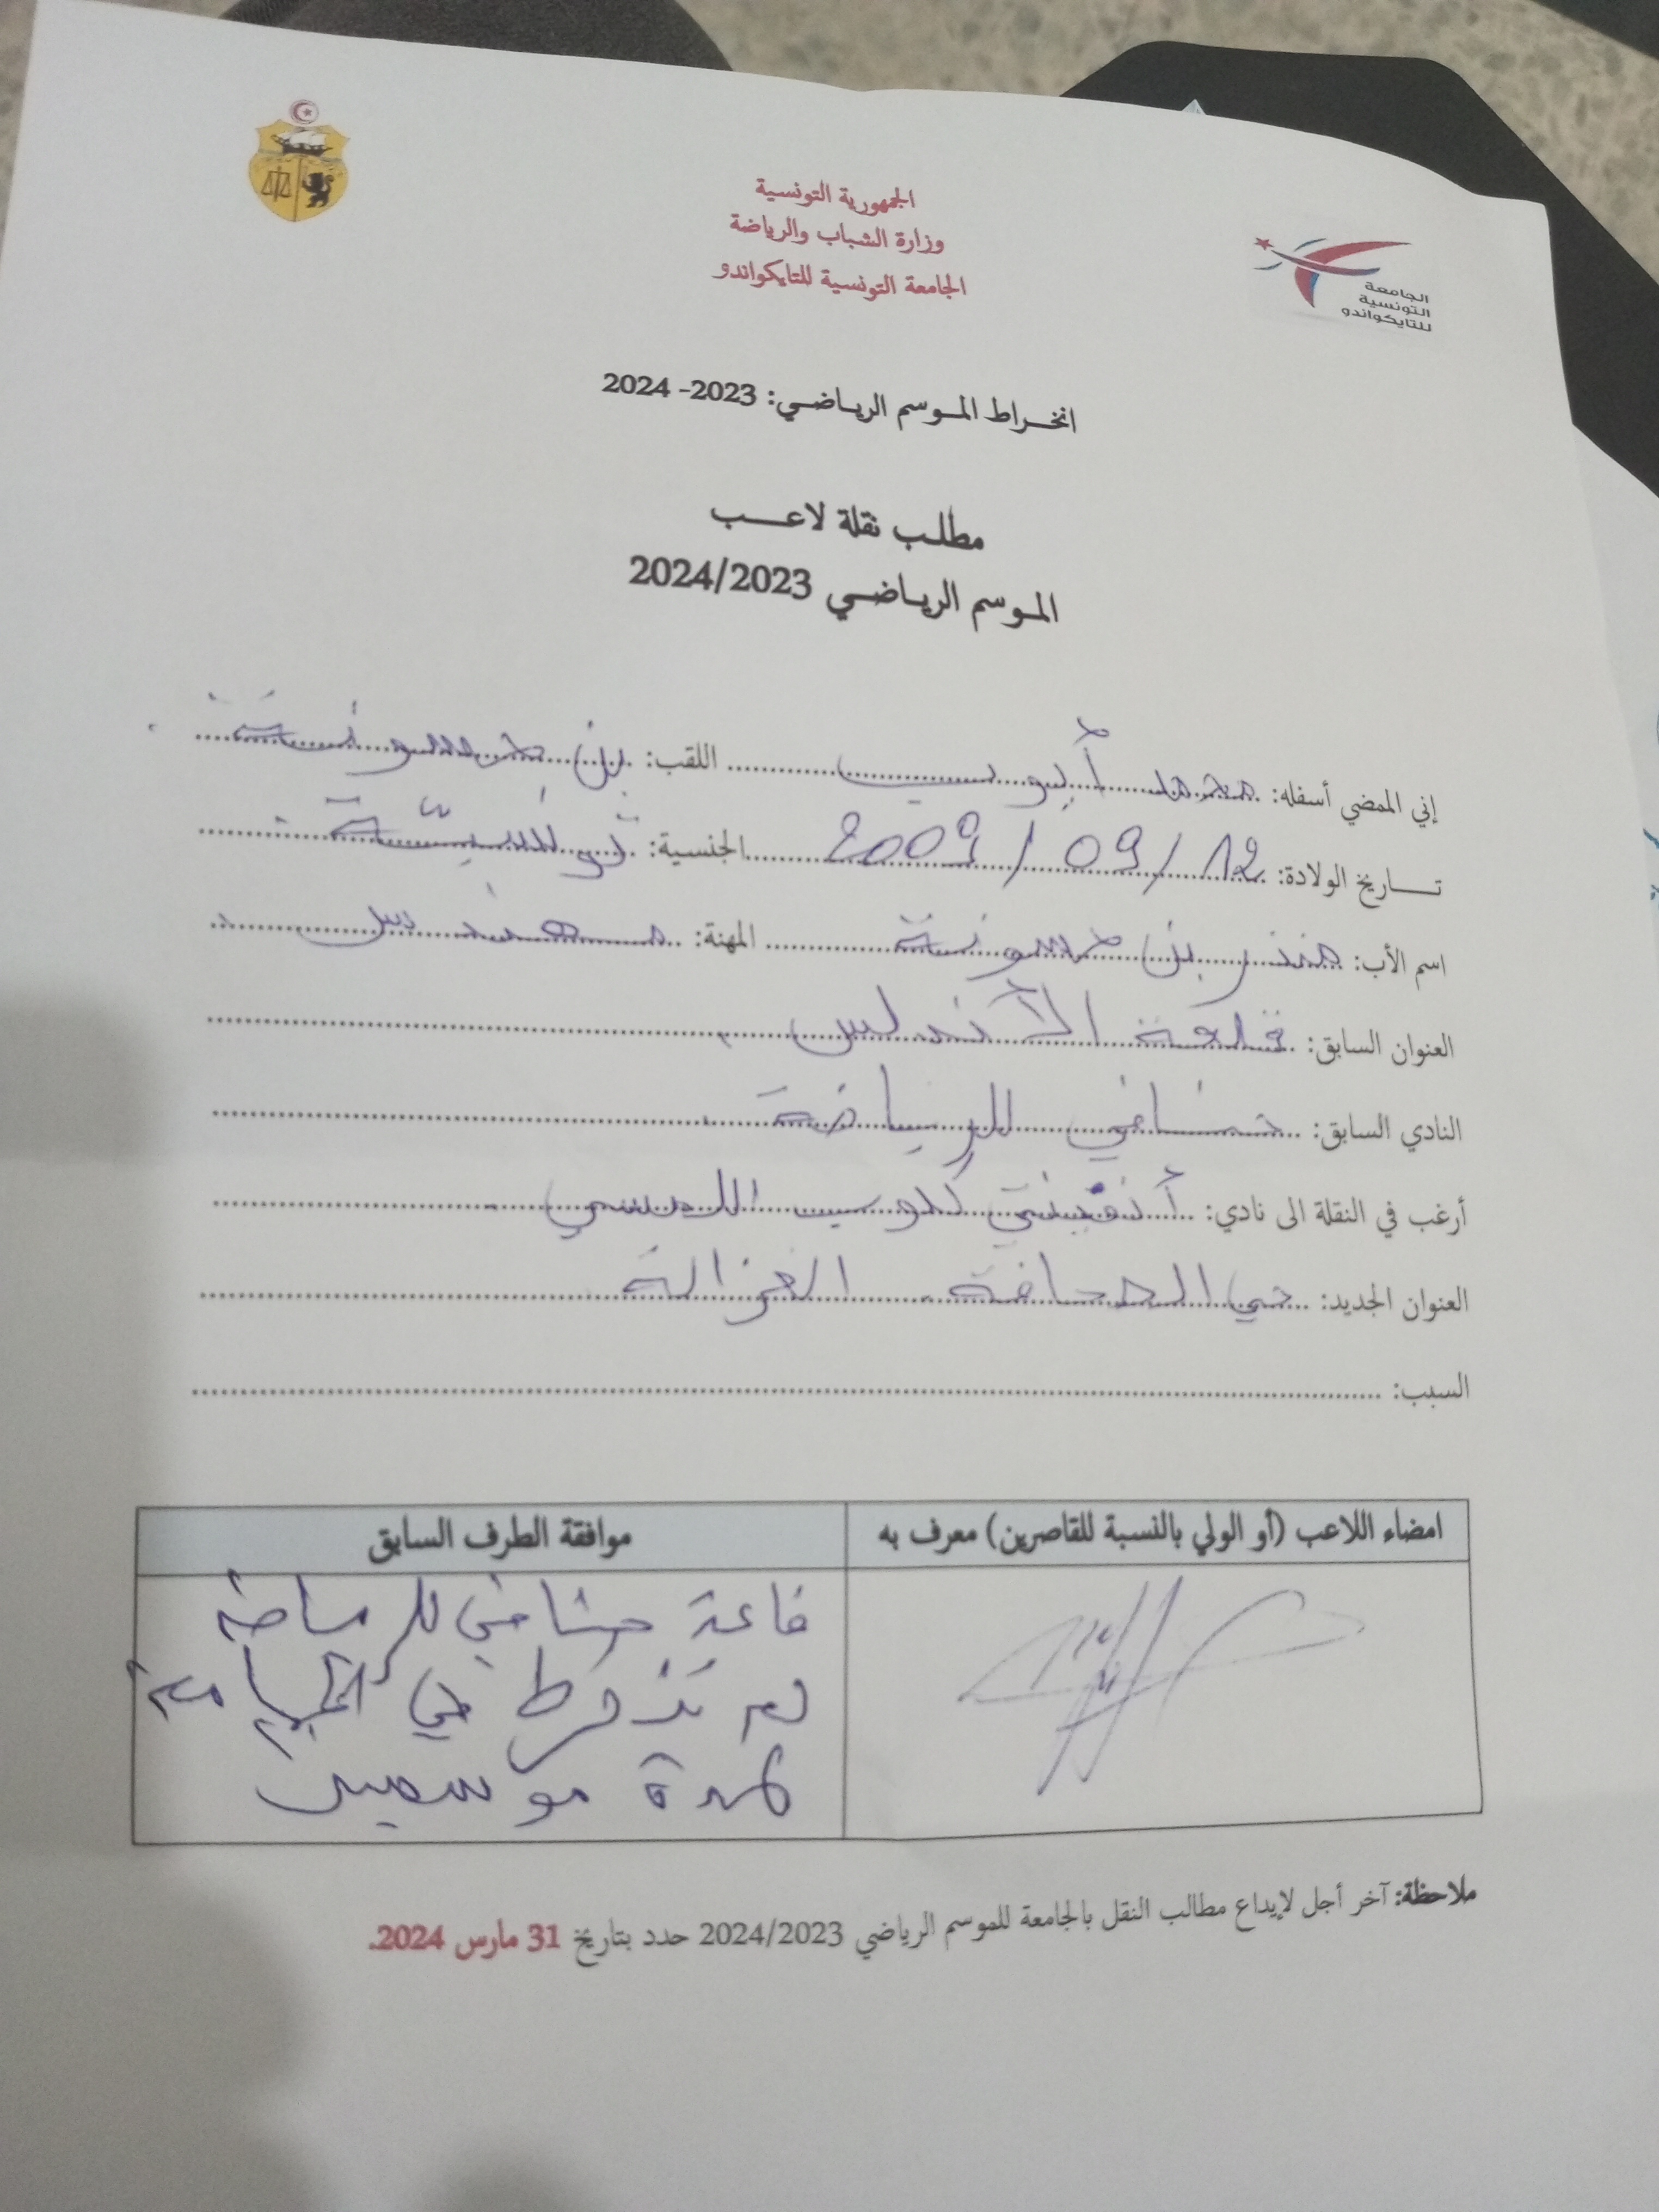 الجمهورية التونسية
وزارة الشباب والرياضة
الجامعة التونسية للتايكواندو
الجامعة
التونسية
للتايكواندو
انخراط الموسم الرياضي: 2023- 2024
مطلب نقلة لاعب
الموسم الرياضي 2024/2023
إني الممضي أسفله: محمد أيوب اللقب: بن حسونة
تاريخ الولادة: 12/09/2009 الجنسية: تونسية
اسم الأب: منذر بن حسونة المهنة: مهندس
العنوان السابق: قلعة الأندلس
النادي السابق: حشاني للرياضة
أرغب في النقلة الى نادي: أنفينتي كلوب
العنوان الجديد: حي الصحافة - الغزالة
السبب:
امضاء اللاعب (أو الولي بالنسبة للقاصرين) معرف به
موافقة الطرف السابق
قاعة حشاني للرياضة
لم تنخرط في الجامعة
لمدة موسمين
ملاحظة: آخر أجل لإيداع مطالب النقل بالجامعة للموسم الرياضي 2024/2023 حدد بتاريخ 31 مارس 2024.